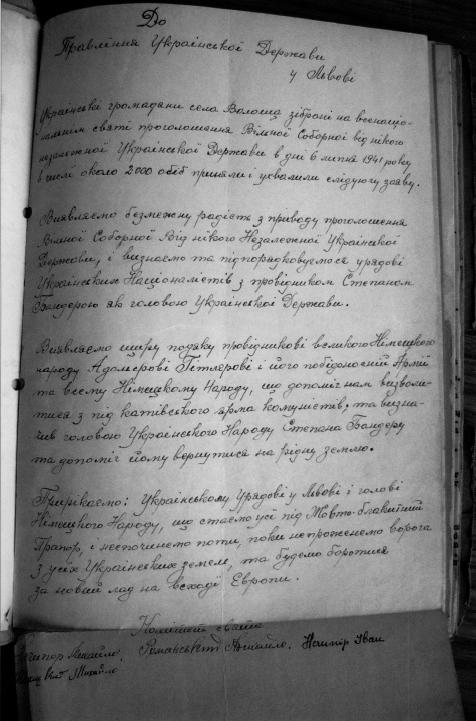 До
Правління Української Держави
у Львові
Українські громадяни села Волоща зібрані на всенаціо-
нальнім святі проголошення Вільної Соборної від нікого
незалежної Української Держави в дні 6 липня 1941 року
в числі около 2000 осіб приняли і ухвалили слідуючу заяву.
Виявляємо безмежну радість з приводу проголошення
Вільної Соборної Від нікого Незалежної Української
Держави, і визнаємо та підпорядковуємося урядові
Українських Націоналістів з провідником Степаном
Бандерою як головою Української Держави.
Виявляємо щиру подяку провідникові великого Німецького
народу Адольфові Гітлєрові і його побідоносній Армії
та всему Німецкому Народу, що допоміг нам визволи-
тися з під катівського ярма комуністів, та визна-
чив головою Українського Народу Степана Бандеру
та допоміг йому вернутися на рідну землю.
Прирікаємо: Українському Урядові у Львові і голові
Німецкого Народу, що стаємо усі під Жовто-блакитний
Прапор, і неспочинемо поти, поки непроженемо ворога
з усіх Українських земель, та будемо боротися
за новий лад на всході Европи.
Комітет свята
Михайло, Романський Михайло, Нечипір Іван
Михайло